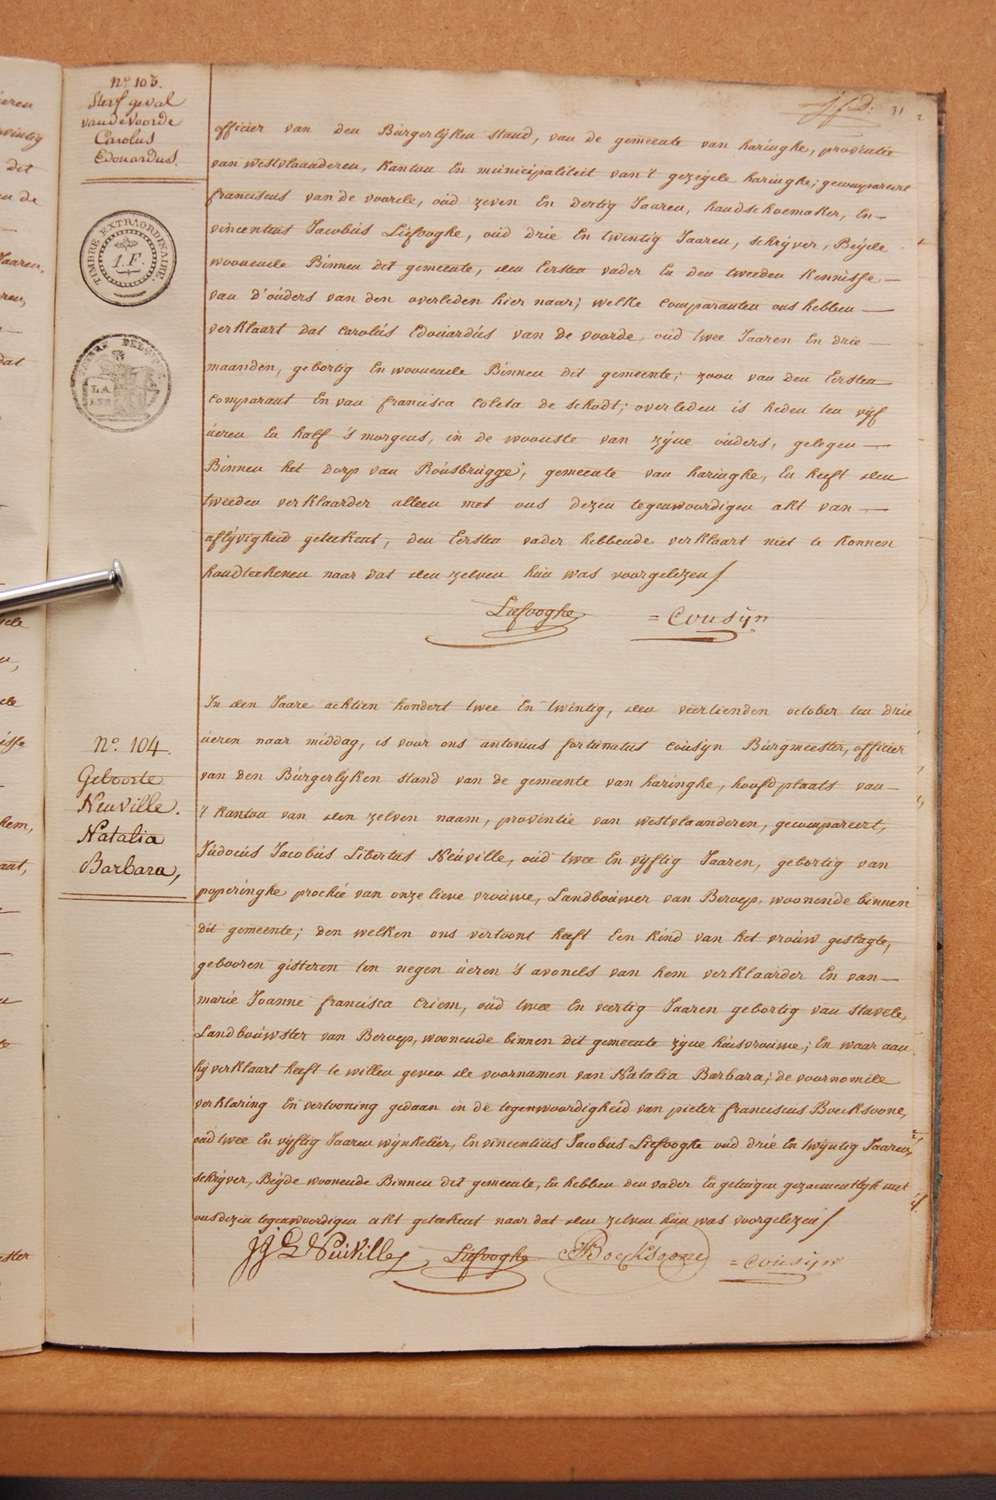 31
N.º 103.
Sterfgeval
van de Voorde
Carolus
Edouardus.
TIMBRE EXTRAORDINAIRE.
1.F.
officier van den Bürgerlijken stand, van de gemeente van haringhe, provintie
van westvlaanderen, kanton En municipaliteit van 't gezegde haringhe; gecompareert
franciscus van de voorde, oud zeven En dertig Jaaren, handschoemaker, En—
vincentius Jacobüs Liefooghe, oud drie En twintig Jaaren, schrijver, Beijde
woonende Binnen dit gemeente, den Eersten vader En den tweeden kennisse—
van d'ouders van den overleden hier naar; welke comparanten ons hebben—
verklaart dat carolüs Edoüardüs van de voorde, oud twee Jaaren En drie—
maanden, gebortig En woonende Binnen dit gemeente; zoon van den Eersten
comparant En van francisca coleta de schodt; overleden is heden ten vijf
üeren En half 's morgens, in de wooniste van zijne oüders, gelegen—
Binnen het dorp van Roüsbrügge, gemeente van haringhe, En heeft den
tweeden verklaarder alleen met ons dezen tegenwoordigen akt van—
aflijvigheid geteekent, den Eersten vader hebbende verklaart niet te konnen
handteekenen naar dat den zelven hün was voorgelezen/
Liefooghe = Cousijn
N.º 104.
Geboorte
Neuville.
Natalia
Barbara,
In den Jaare achtien hondert twee En twintig, den veertienden october ten drie
üeren naar middag, is voor ons antonius fortunatus coüsijn Bürgmeester, officier
van den Bürgerlijken stand van de gemeente van haringhe, hoofdplaats van—
't kanton van den zelven naam, provintie van westvlaanderen, gecompareert,
Jüdocüs Jacobüs Libertus Neüville, oüd twee En vijftig Jaaren, gebortig van
poperinghe prochie van onze lieve vrouwe, Landboüwer van Beroep, woonende binnen
dit gemeente; den welken ons vertoont heeft Een kind van het vroüw geslagte,
gebooren gisteren ten negen üeren 's avonds van hem verklaarder En van—
marie Joanne francisca criem, oüd twee En veertig Jaaren gebortig van stavele,
Landboüwster van Beroep, woonende binnen dit gemeente zijne hüisvrouwe; En waar aan
hij verklaart heeft te willen geven de voornamen van Natalia Barbara; de voornomde
verklaring En vertooning gedaan in de tegenwoordigheid van pieter franciscus Boecksoone,
oüd twee En vijftig Jaaren wijnkelier, En vincentius Jacobus Liefooghe oud drie En twijntig Jaaren,
schrijver, Beijde woonende Binnen dit gemeente, En hebben den vader En getuigen gezaementlijk met
ons dezen tegenwoordigen akt geteekent naar dat den zelven hün was voorgelezen/
JJL Neüville Liefooghe Boecksoone = Coüsijn